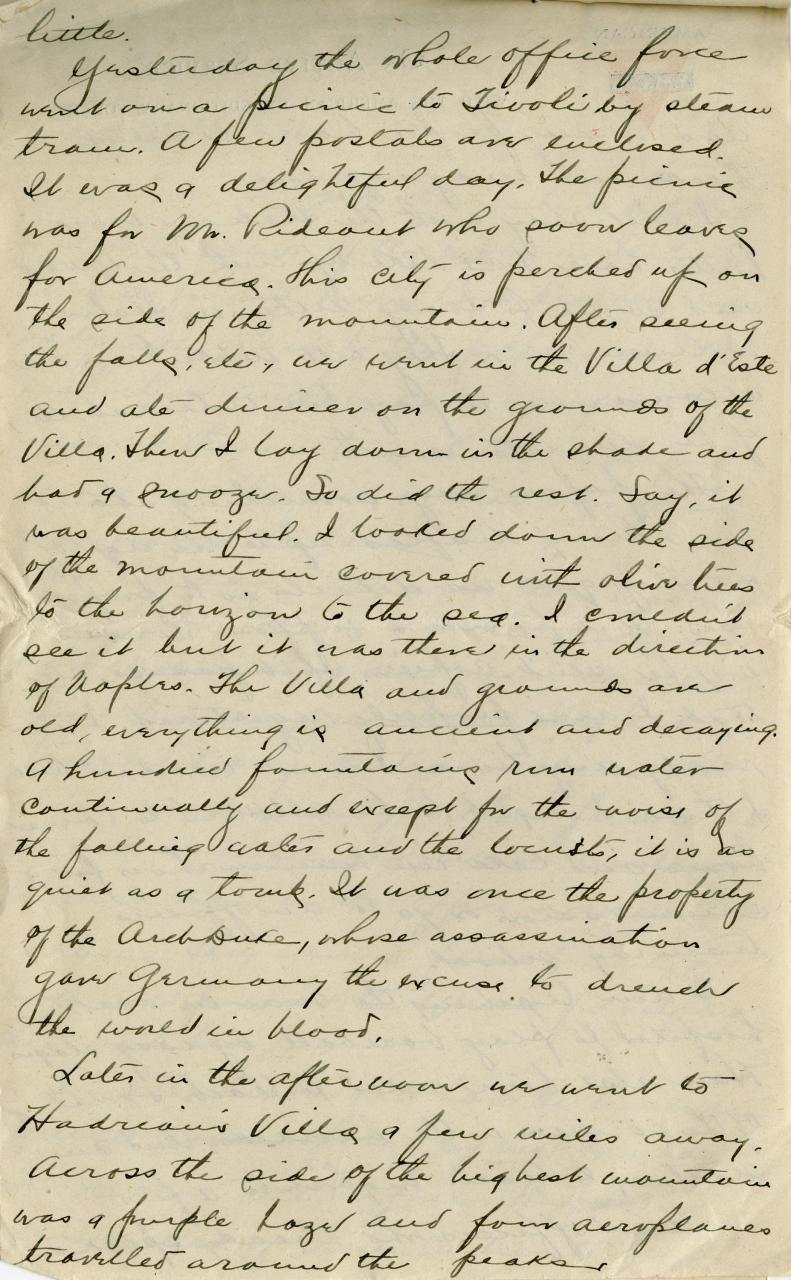 little.
Yesterday the whole office force
went on a picnic to Tivoli by steam
tram. A few postals are enclosed.
It was a delightful day. The picnic
was for Mr. Rideout who soon leaves
for America. This city is perched up on
the side of the mountain. After seeing
the falls, etc., we went in the Villa d'Este
and ate dinner on the grounds of the
Villa. Then I lay down in the shade and
had a snooze. So did the rest. Say, it
was beautiful. I looked down the side
of the mountain covered with olive trees
to the horizon to the sea. I couldn't
see it but it was there in the direction
of Naples. The Villa and grounds are
old, everything is ancient and decaying.
A hundred fountains run water
continually and except for the noise of
the falling water and the locusts, it is as
quiet as a tomb. It was once the property
of the ArchDuke, whose assassination
gave Germany the excuse to drench
the world in blood.
Later in the afternoon we went to
Hadrian's Villa a few miles away.
Across the side of the highest mountain
was a purple haze and four aeroplanes
travelled around the peaks.